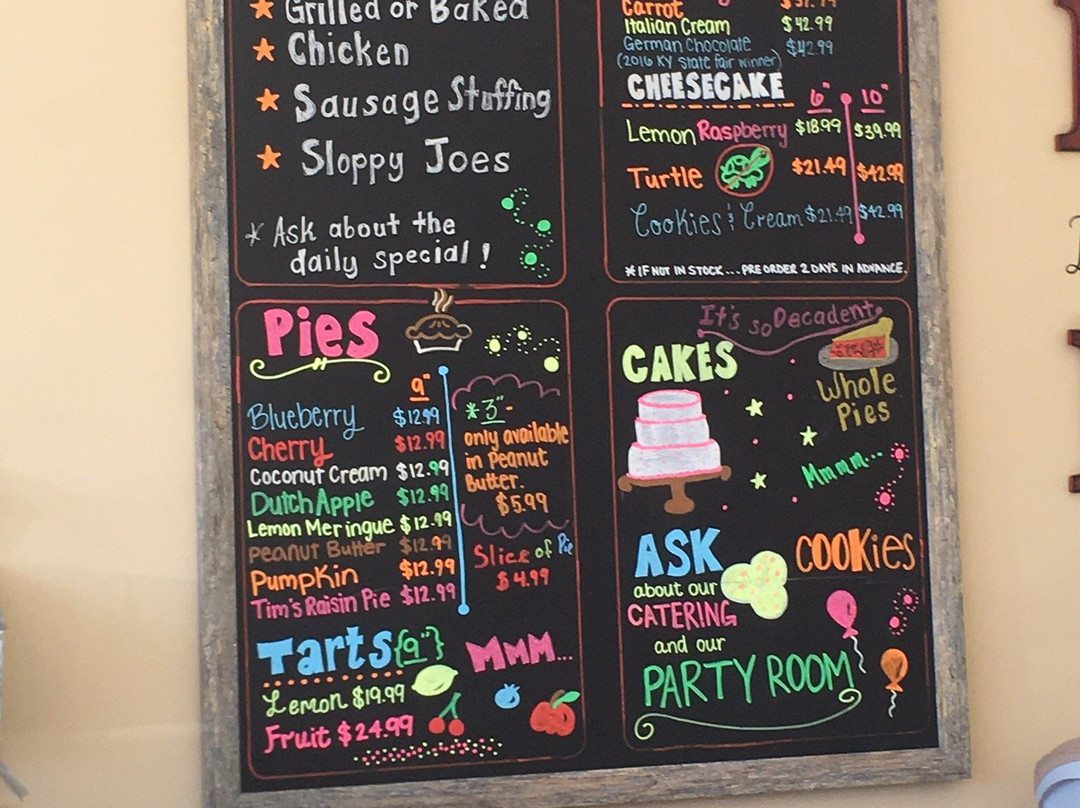 ★ Grilled or Baked
★ Chicken
★ Sausage Stuffing
★ Sloppy Joes
* Ask about the
daily special!
Carrot
Italian Cream $42.99
German Chocolate $42.99
(2016 KY State fair winner)
CHEESECAKE 6" 10"
Lemon Raspberry $18.99 $39.99
Turtle $21.49 $42.99
Cookies & Cream $21.49 $42.99
* IF NOT IN STOCK... PRE ORDER 2 DAYS IN ADVANCE.
Pies
9"
Blueberry $12.99
Cherry $12.99
Coconut Cream $12.99
Dutch Apple $12.99
Lemon Meringue $12.99
Peanut Butter $12.99
Pumpkin $12.99
Tim's Raisin Pie $12.99
* 3" -
only available
in Peanut
Butter.
$5.99
Slice of Pie
$4.99
Tarts {9"}
MMM...
Lemon $19.99
Fruit $24.99
It's so Decadent
CAKES
Whole
Pies
Mmmm...
ASK
about our
CATERING
and our
PARTY ROOM
COOKies